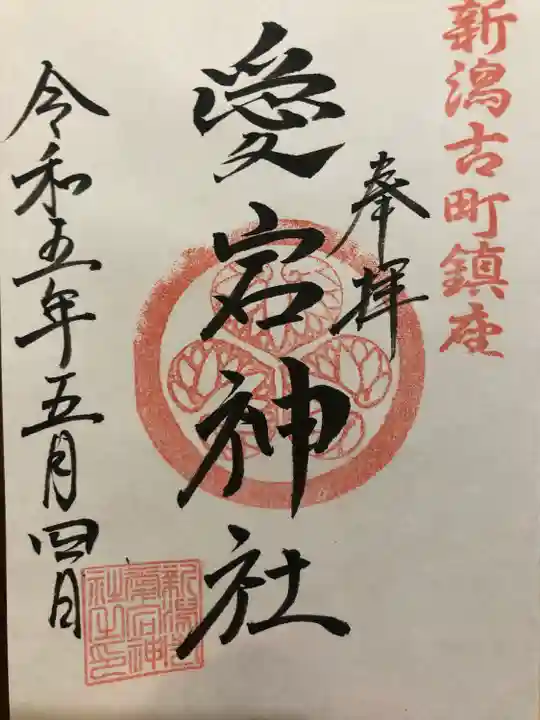 新潟古町鎮座
奉拝
愛宕神社
令和五年五月四日